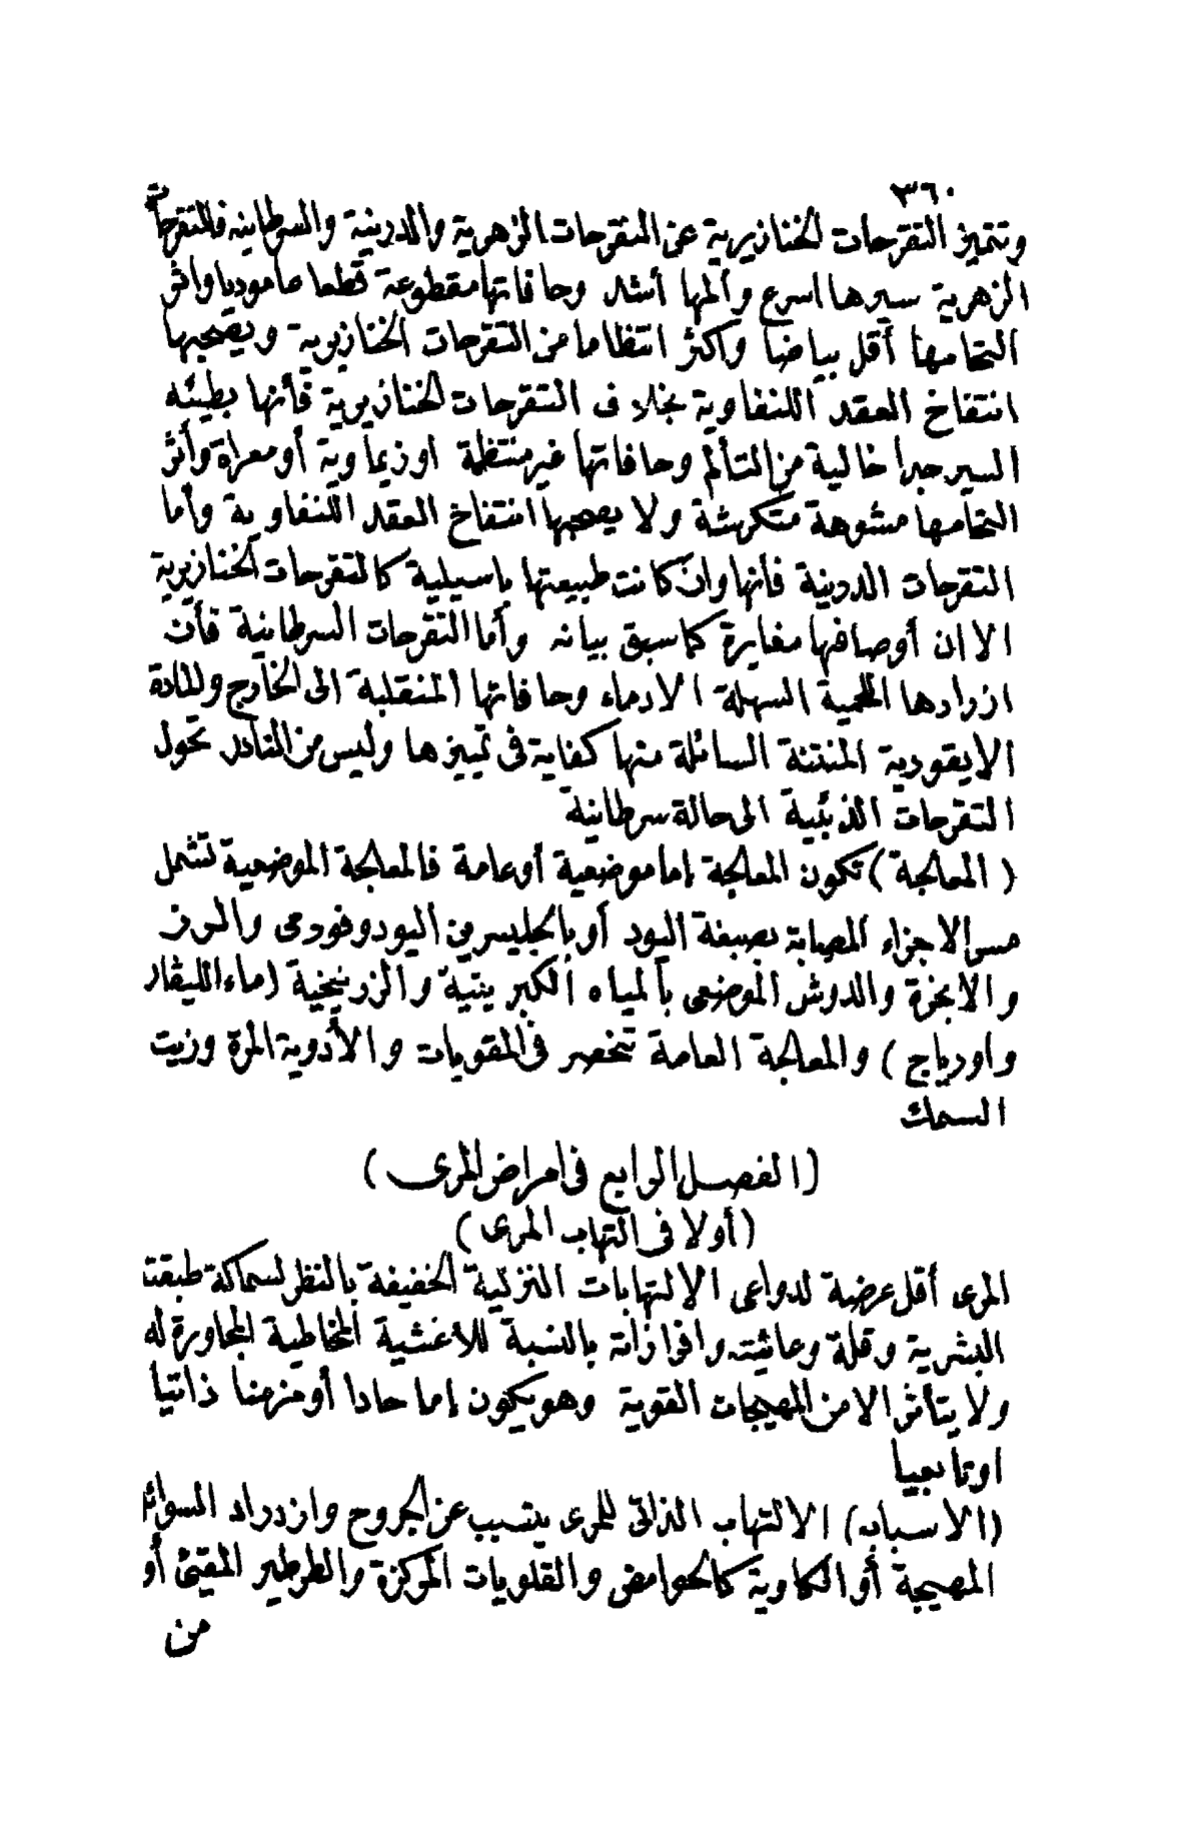 ٣٦٠
وتتميز التقرحات الخنازيرية عن التقرحات الزهرية والدرنية والسرطانيه فالتقرحات
الزهرية سيرها اسرع وألمها أشد وحافاتها مقطوعة قطعا عاموديا واثر
التحامها أقل بياضا وأكثر انتظاما من التقرحات الخنازيرية ويصحبها
انتفاخ العقد اللنفاوية بخلاف التقرحات الخنازيرية فأنها بطيئه
السير جدا خالية من التألم وحافاتها غير منتظمة اوذيماوية أومعراة وأثر
التحامها مشوهة متكرشة ولا يصحبها انتفاخ العقد اللنفاوية وأما
التقرحات الدرنية فأنها وان كانت طبيعتها باسيلية كالتقرحات الخنازيرية
الا ان أوصافها مغايرة كما سبق بيانه وأما التقرحات السرطانية فأن
ازرارها اللحمية السهلة الادماء وحافاتها المنقلبة الى الخارج وللمادة
الايقودية المنتنة السائلة منها كفاية فى تمييزها وليس من النادر تحول
التقرحات الذئبية الى حالة سرطانية
( المعالجة ) تكون المعالجة إما موضعية أوعامة فالمعالجة الموضعية تشمل
مس الاجزاء المصابة بصبغة اليود أو بالجليسرين اليودوفورمى والرذ
والابخرة والدوش الموضعى بالمياه الكبريتية والزرنيخية (ماء الليقار
واورياج ) والمعالجة العامة تنحصر فى المقويات والأدوية المرة وزيت
السمك
(الفصل الرابع فى امراض المرى )
(أولا فى التهاب المرى )
المرى أقل عرضة لدواعى الالتهابات النزلية الخفيفة بالنظر لسماكة طبقته
البشرية وقلة وعائيته وافرازاته بالنسبة للاغشية المخاطية المجاورة له
ولا يتأثر الا من المهيجات القوية وهو يكون إما حادا أومزمنا ذاتيا
اوتابعيا
(الاسباب) الالتهاب الذاتى للمرى يتسبب عن الجروح وازدراد السوائل
المهيجة أو الكاوية كالحوامض والقلويات المركزة والطرطير المقيئ أو
من